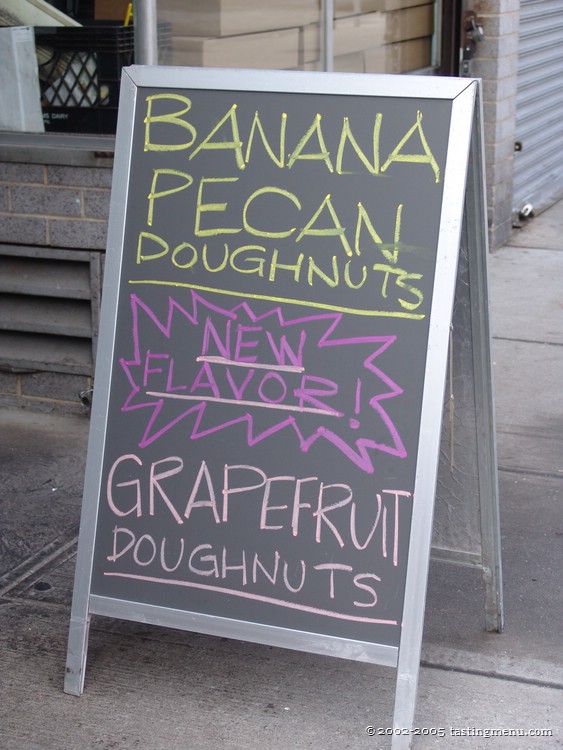 BANANA
PECAN
DOUGHNUTS
NEW
FLAVOR!
GRAPEFRUIT
DOUGHNUTS
© 2002-2005 tastingmenu.com